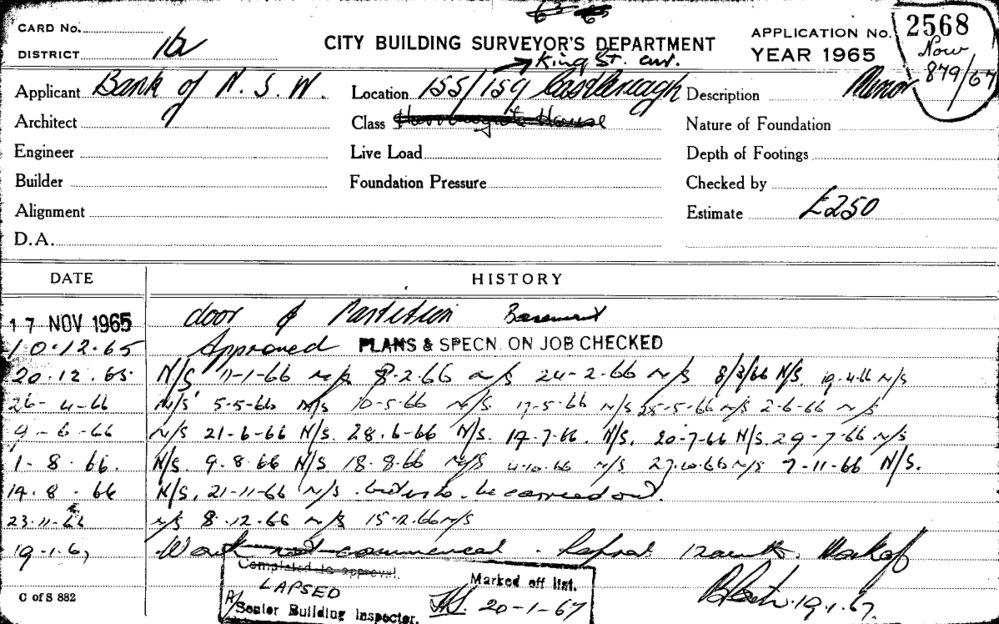 CARD No.
DISTRICT 1a
CITY BUILDING SURVEYOR'S DEPARTMENT
APPLICATION No. 2568
YEAR 1965
Now 879/67
King St. cnr.
Applicant Bank of N. S. W.
Location 155/159 Castlereagh
Description Minor
Architect
Class
House
Nature of Foundation
Engineer
Live Load
Depth of Footings
Builder
Foundation Pressure
Checked by
Alignment
Estimate £250
D.A.
DATE
HISTORY
17 NOV 1965 door & Partition Basement
10.12.65 Approved PLANS & SPECN. ON JOB CHECKED
20.12.65 N/S 11-1-66 n/s 8-2-66 n/s 24-2-66 n/s 8/3/66 N/S. 19-4-66 n/s
26-4-66 n/s 5-5-66 n/s 10-5-66 n/s. 17-5-66 n/s 25-5-66 n/s 2-6-66 n/s
9-6-66 n/s 21-6-66 N/S. 28.6-66 N/S. 14.7.66. N/S. 20-7-66 N/S. 29-7-66 n/s
1-8.66. N/S. 9.8.66 N/S 18.8.66 n/s 4.10.66 n/s 27.10.66 n/s 7-11-66 N/S.
19.8.66 N/S. 21-11-66 n/s. to be carried out.
23.11.66 n/s 8.12.66 n/s 15.12.66 n/s
19.1.67 Work not commenced. Lapsed 12 months. Mark off
19.1.67.
Completed to approval.
LAPSED
Marked off list.
Senior Building Inspector.
20-1-67
C of S 882